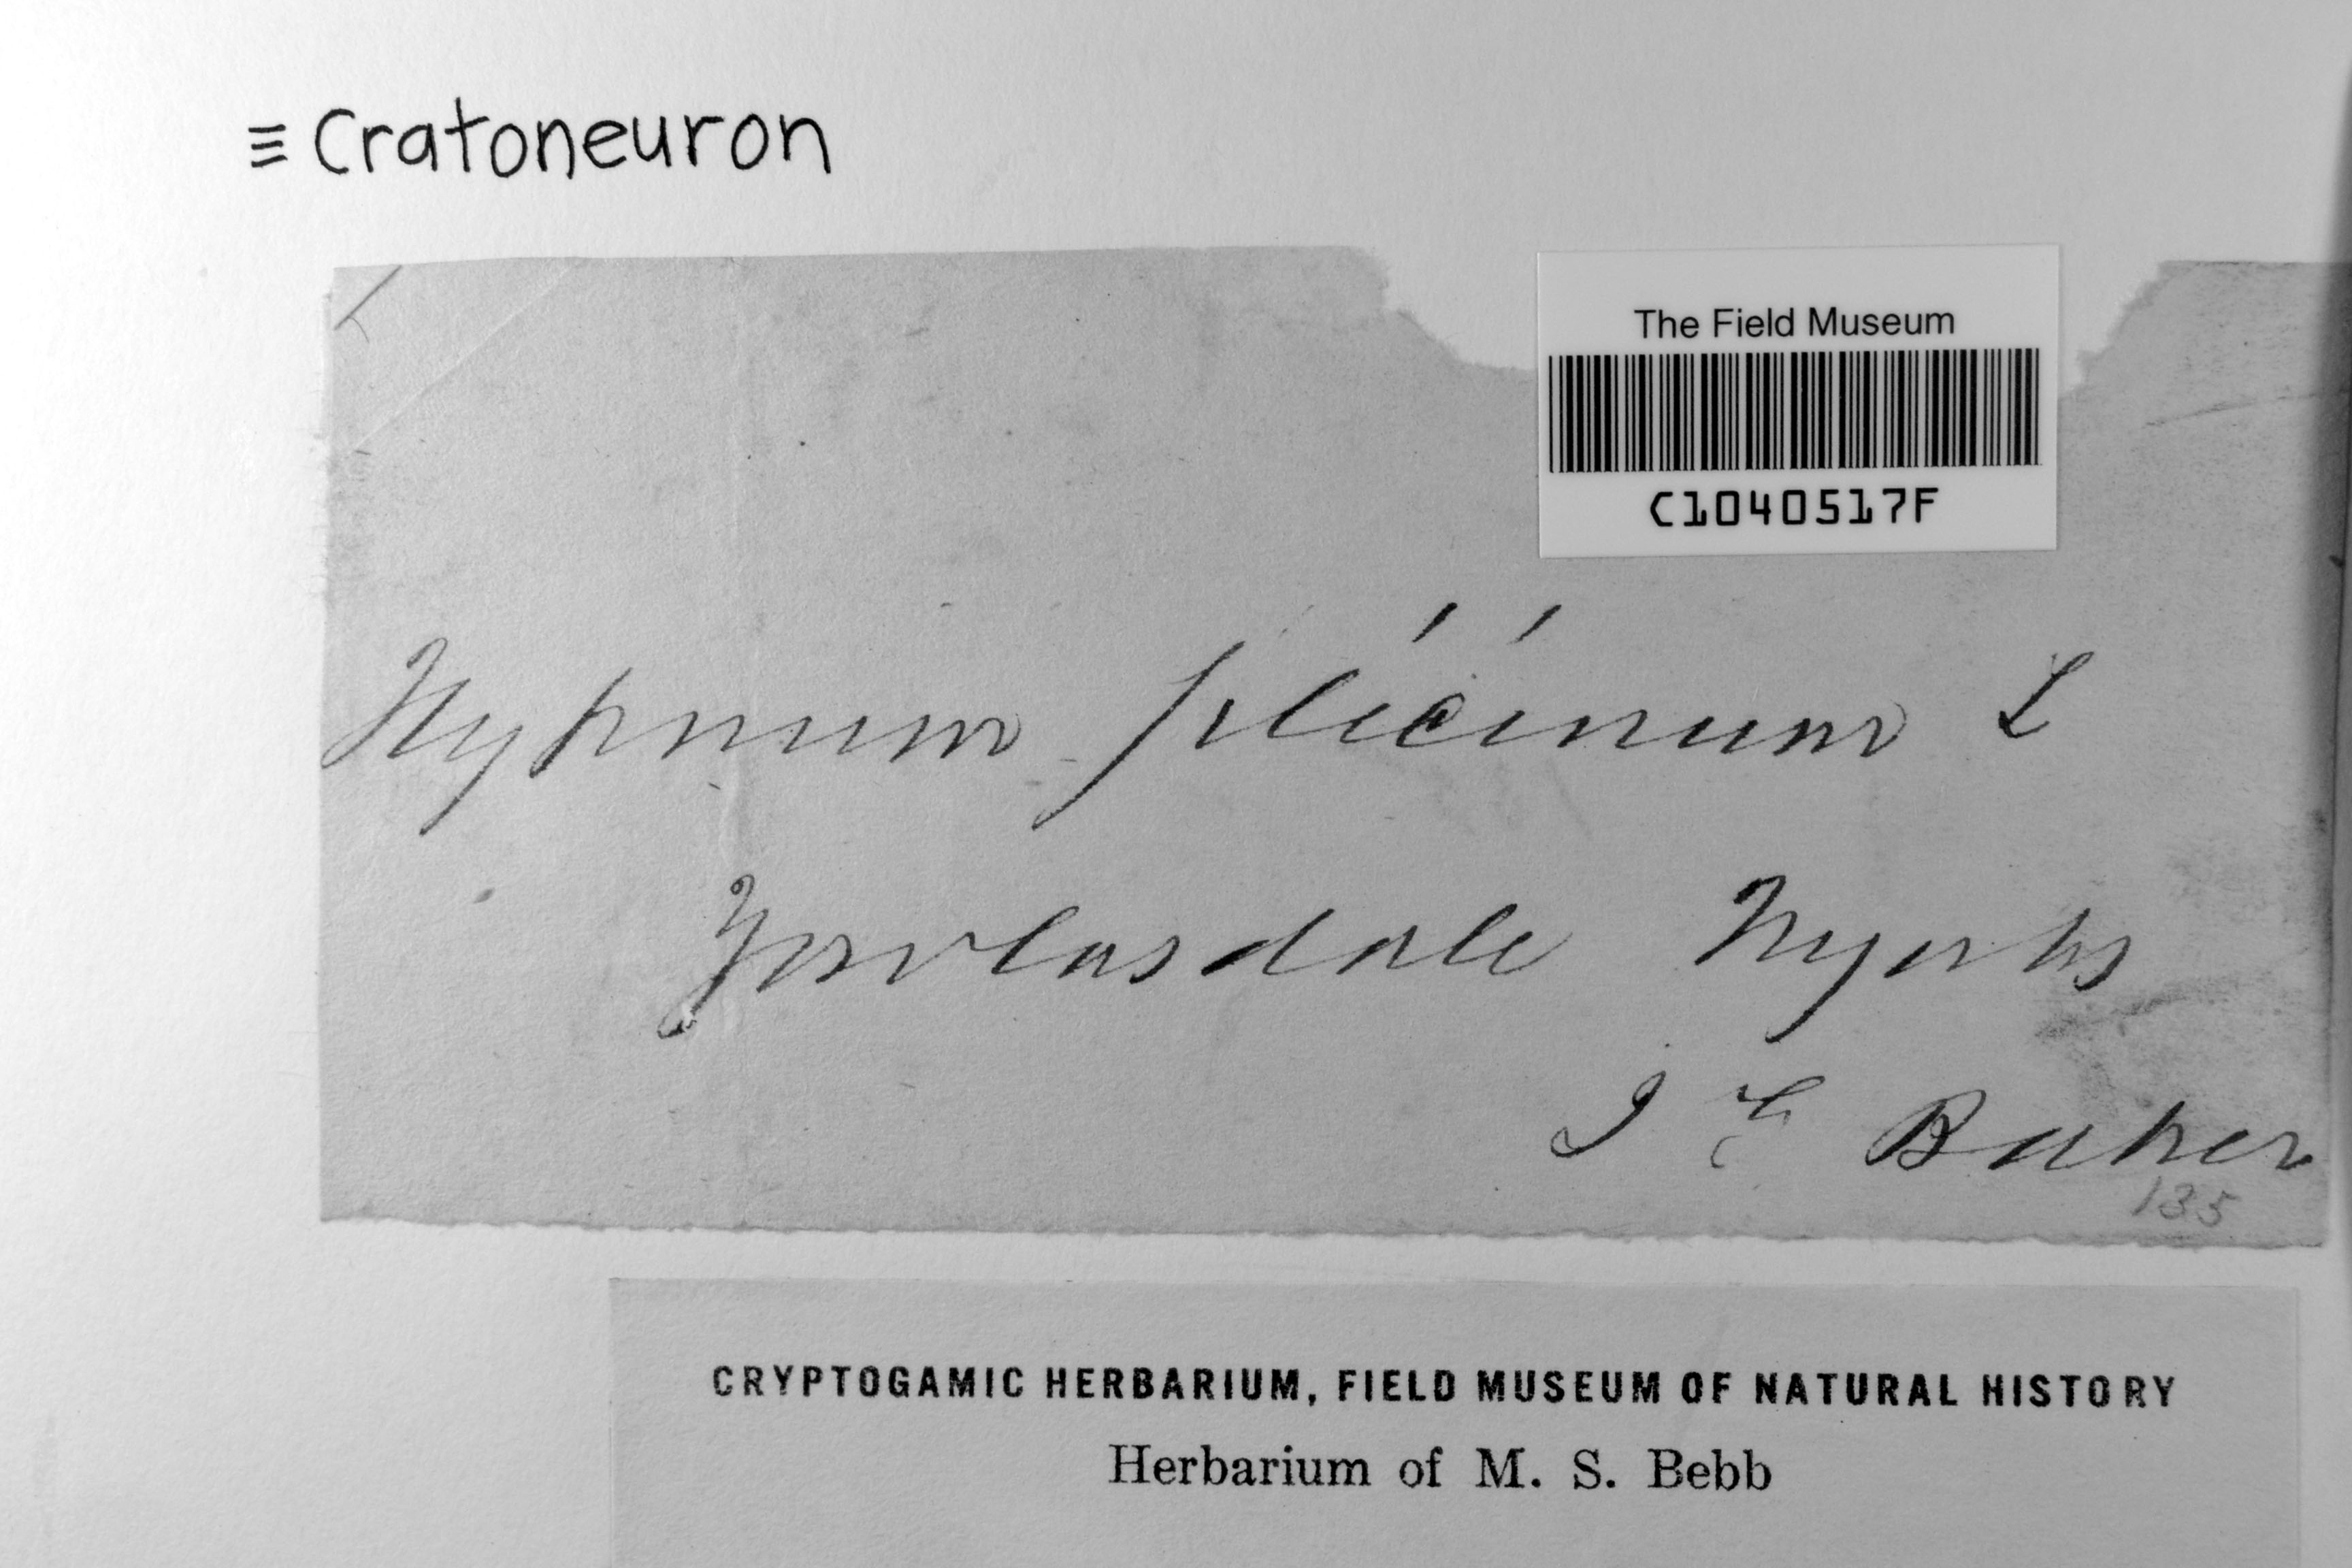 ≡ Cratoneuron
The Field Museum
C1040517F
Hypnum filicinum L
Yowlasdale N Yorks
J G Baker
135
CRYPTOGAMIC HERBARIUM, FIELD MUSEUM OF NATURAL HISTORY
Herbarium of M. S. Bebb